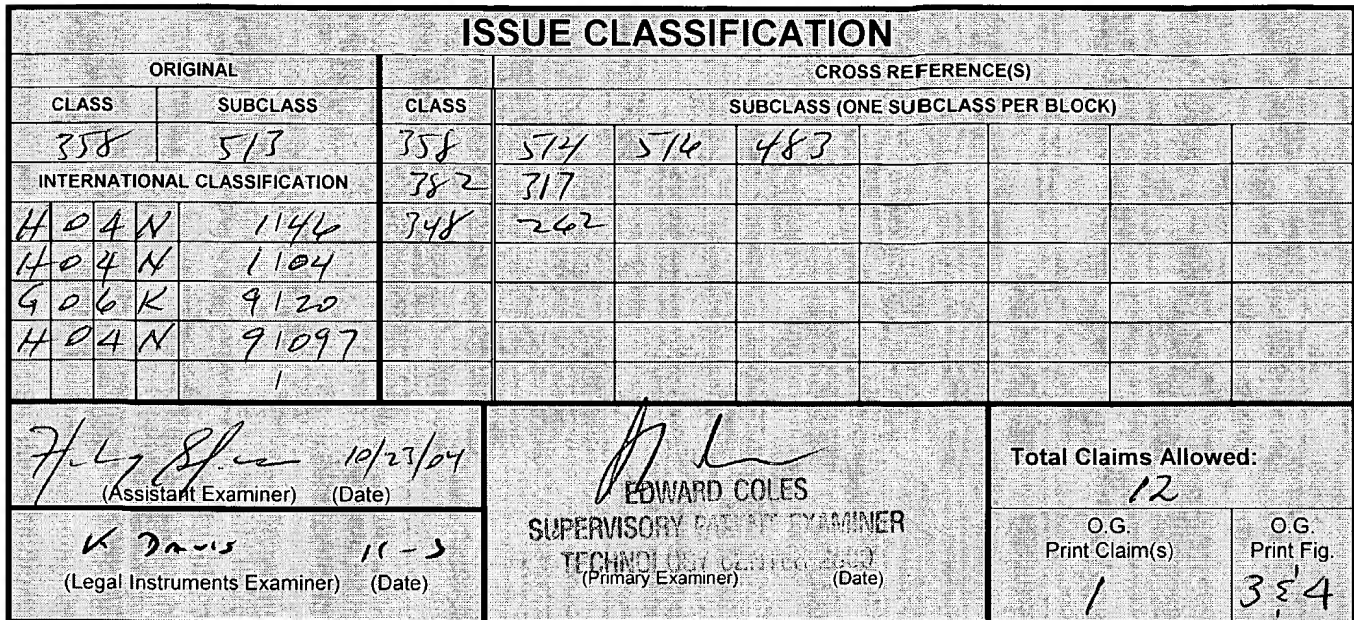 ISSUE CLASSIFICATION
ORIGINAL CROSS REFERENCE(S)
CLASS SUBCLASS CLASS SUBCLASS (ONE SUBCLASS PER BLOCK)
358 513 358 514 516 483
INTERNATIONAL CLASSIFICATION 382 317
H 0 4 N 1/46 348 262
H 0 4 N 1/04
G 0 6 K 9/20
H 0 4 N 9/097
/
10/23/04
(Assistant Examiner) (Date)
K Davis 11-3
(Legal Instruments Examiner) (Date)
EDWARD COLES
SUPERVISORY PATENT EXAMINER
TECHNOLOGY CENTER
(Primary Examiner) (Date)
Total Claims Allowed:
12
O.G. Print Claim(s)
1
O.G. Print Fig.
3 & 4